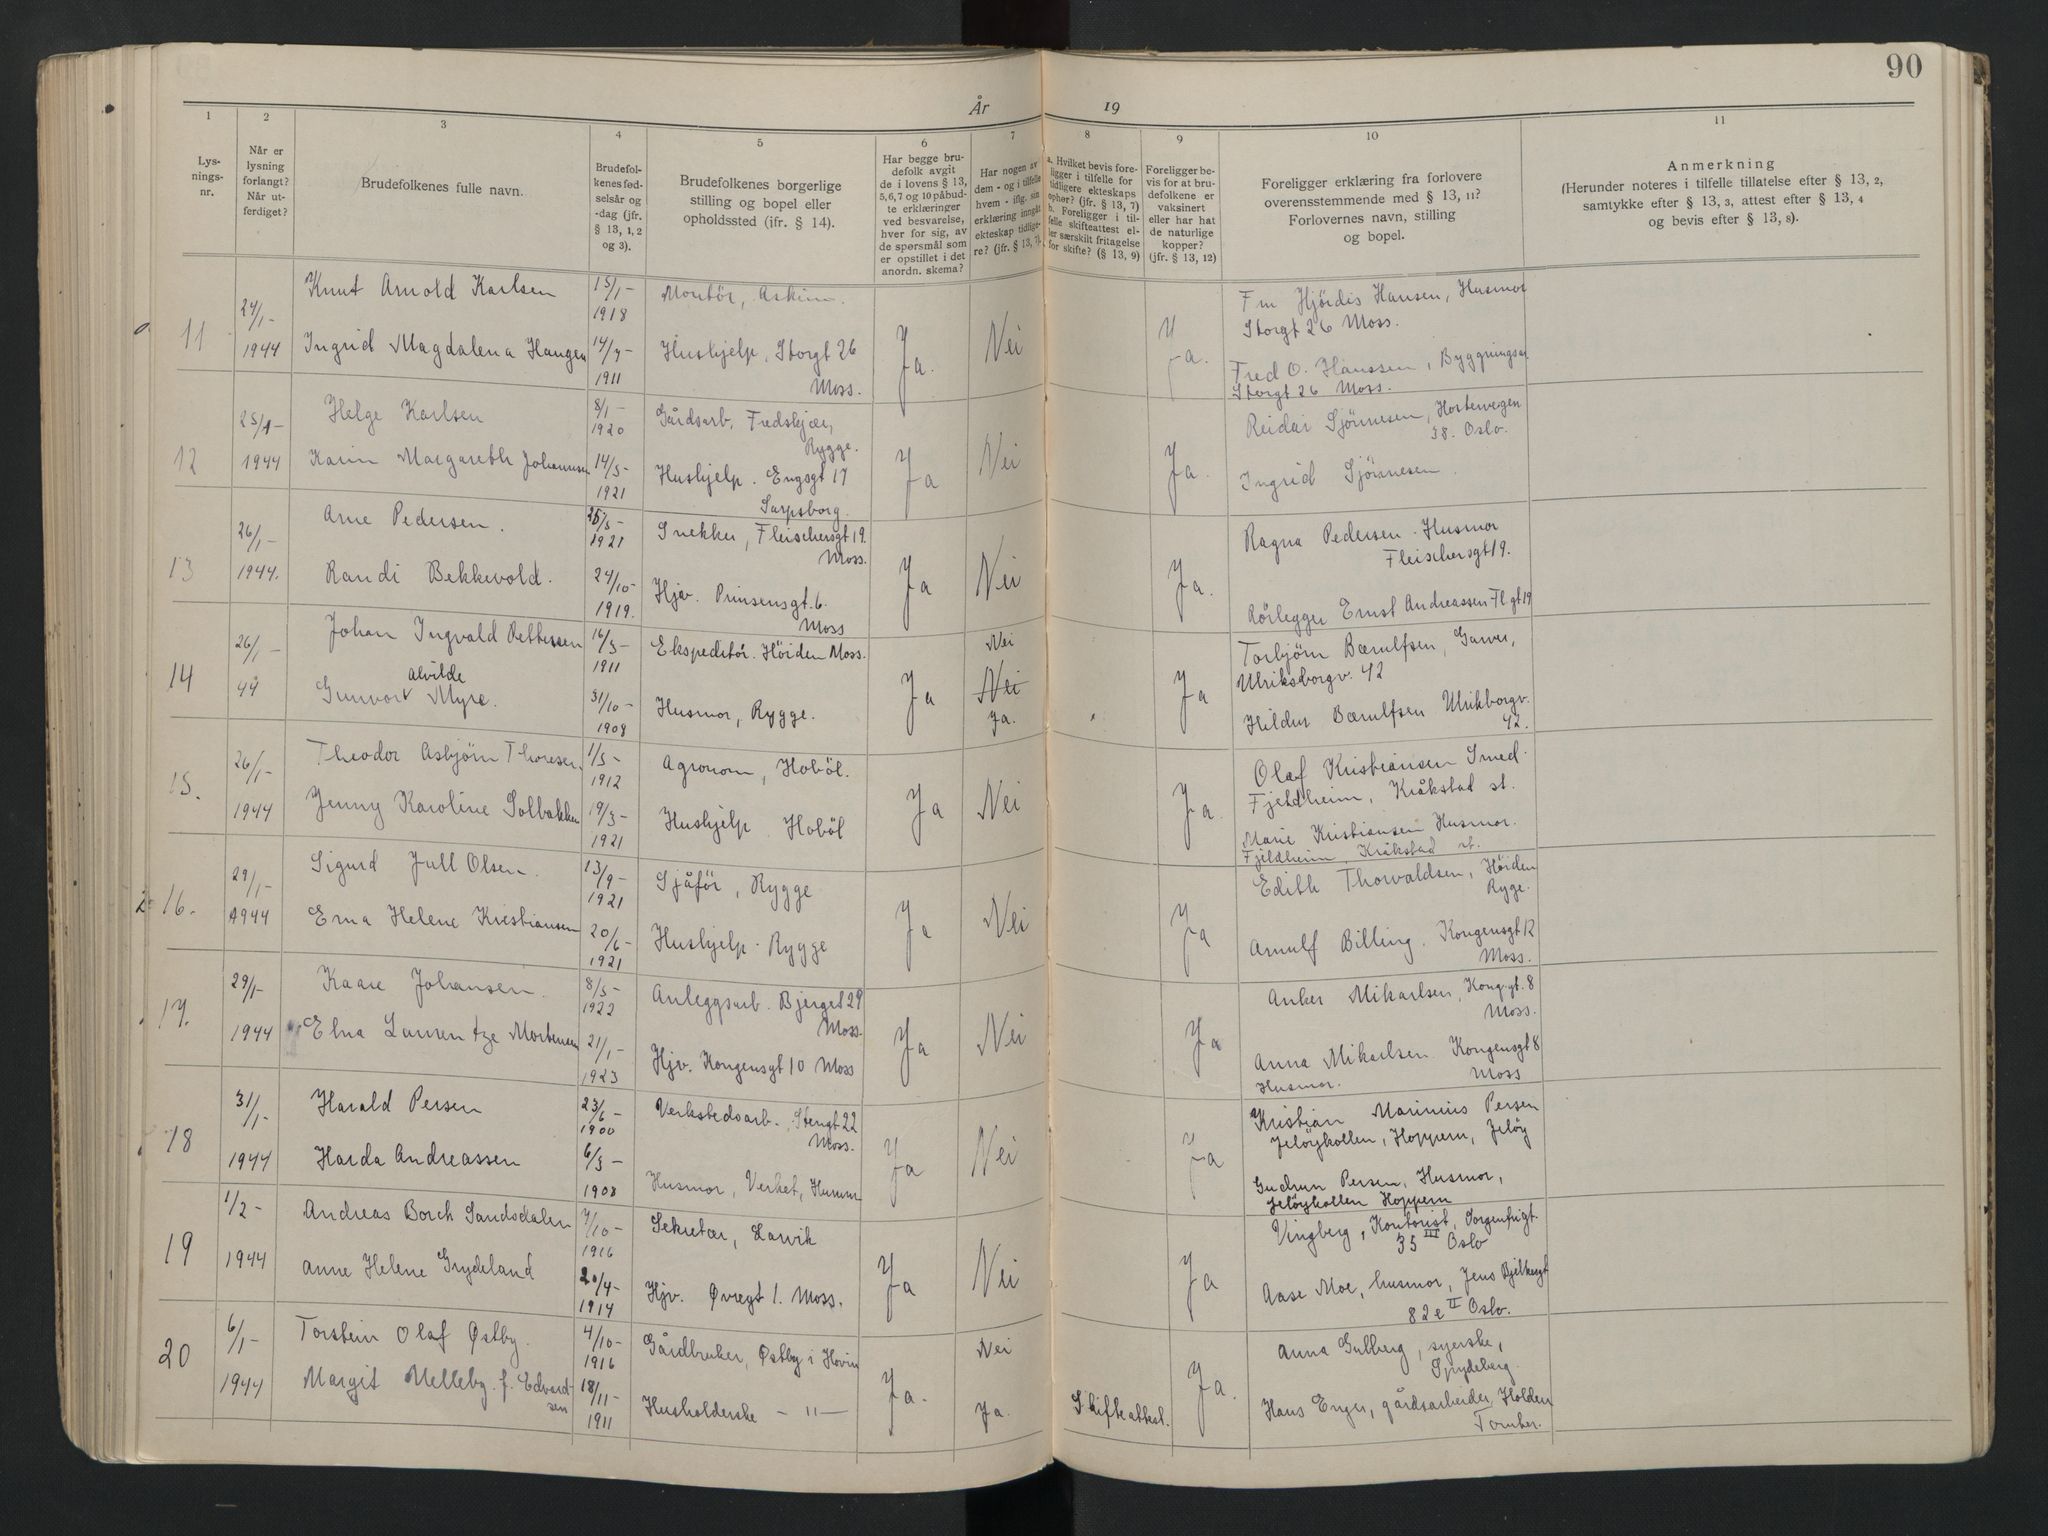 90
År 19
1 2 3 4 5 6 7 8 9 10 11
Lys-
nings-
nr.
Når er
lysning
forlangt?
Når ut-
ferdiget?
Brudefolkenes fulle navn.
Brudefol-
kenes fød-
selsår og
-dag (jfr.
§ 13, 1, 2
og 3).
Brudefolkenes borgerlige
stilling og bopel eller
opholdssted (jfr. § 14).
Har begge bru-
defolk avgit
de i lovens § 13,
5,6,7 og 10 påbud-
te erklæringer
ved besvarelse,
hver for sig, av
de spørsmål som
er opstillet i det
anordn. skema?
Har nogen av
dem - og i tilfelle
hvem - iflg. sin
erklæring inngått
ekteskap tidlige-
re? (jfr. § 13, 7).
a. Hvilket bevis fore-
ligger i tilfelle for
tidligere ekteskaps
ophør? (jfr. § 13, 7)
b. Foreligger i til-
felle skifteattest el-
ler særskilt fritagelse
for skifte? (§ 13, 9)
Foreligger be-
vis for at bru-
defolkene er
vaksinert
eller har hat
de naturlige
kopper?
(jfr. § 13, 12)
Foreligger erklæring fra forlovere
overensstemmende med § 13, 11?
Forlovernes navn, stilling
og bopel.
Anmerkning
(Herunder noteres i tilfelle tillatelse efter § 13, 2,
samtykke efter § 13, 3, attest efter § 13, 4
og bevis efter § 13, 8).
11 24/1- 1944
Knut Arnold Karlsen 15/1- 1918 Montör, Askim.
Ingrid Magdalena Haugen 14/7- 1911 Hushjelp, Storgt 26
Moss.
Ja. Nei Ja.
Fru Hjördis Hansen, Husmor
Storgt 26 Moss.
Fred O. Hanssen, Byggningsar
Storgt 26 Moss.
12 25/1- 1944
Helge Karlsen 8/1- 1920 Gårdsarb. Fredskjær,
Rygge.
Karin Margareth Johannsen 14/5- 1921 Hushjelp. Engsgt 17
Sarpsborg.
Ja Nei Ja.
Reidar Sjönnesen,
38. Oslo.
Ingrid Sjönnesen.
13 26/1- 1944.
Arne Pedersen. 25/5- 1921 Snekker, Fleischersgt 19.
Moss.
Randi Bekkevold. 24/10- 1919. Hjv. Prinsensgt. 6.
Moss
Ja Nei Ja.
Ragna Pedersen. Husmor
Fleischersgt 19.
Rörlegger Ernst Andreassen Fl.gt 19
14 26/1- 44
Johan Ingvald 16/5- 1911 Ekspeditör. Höiden Moss.
Alvilde
Gunvort Myre. 31/10- 1908 Husmor, Rygge.
Ja Nei
Nei
Ja. Ja
Torbjörn Bærulfsen,
Ulriksborgv. 42
Hildur Bærulfsen Ulrikborgv.
42.
15. 26/1- 1944
Theodor Asbjörn Thoresen. 1/5- 1912 Agronom, Hoböl.
Jenny Karoline Solbakken 19/3- 1921 Hushjelp. Hoböl
Ja Nei Ja.
Olaf Kristiansen Smed
Fjeldheim, Kråkstad st.
Marie Kristiansen Husmor.
Fjeldheim, Kråkstad st.
16. 29/1- 1944
Sigurd Jull Olsen. 13/9- 1921 Sjåför, Rygge
Erna Helene Kristiansen 20/6- 1921 Hushjelp - Rygge
Ja Nei Ja
Edith Thorvaldsen, Höiden
Ryge.
Arnulf Billing. Kongensgt 12
Moss.
17. 29/1- 1944
Kaare Johansen. 8/5- 1922 Anleggsarb. Bjerget 29
Moss.
Elna Laurentze Mortensen 21/1- 1923 Hjv. Kongensgt 10 Moss
Ja Nei Ja
Anker Mikarlsen, Kong.gt. 8
Moss.
Anna Mikarlsen. Kongensgt 8
Husmor. Moss
18 31/1- 1944
Harald Persen 23/6- 1900 Verkstedsarb., Stengt 22
Moss.
Harda Andreassen 6/3- 1908 Husmor, Verket,
Ja Nei Ja
Kristian Marinius Persen
Jelöykollen, Hoppern, Jelöy
Gudrun Persen, Husmor,
Jelöykollen Hoppern
19 1/2- 1944
Andreas Borch Sandsdalen 7/10- 1916 Sekretær, Larvik
Anne Helene Grydeland 20/4- 1914 Hjv. Øvregt 1. Moss.
Ja Nei Ja
Vingberg, Kontorist, Sorgenfrigt.
35 III Oslo
Aase Moe, husmor, Jens Bjelkesgt
82e II Oslo.
20 6/1- 1944
Torstein Olaf Østby. 4/10- 1916 Gårdbruker, Østby i Hovin
Margit Melleby. f. Edvard-
sen 18/11- 1911 Husholderske - " -
Ja. Nei
Ja. Skifteattest. Ja.
Anna Gulberg, syerske,
Spydeberg.
Hans Enger, gårdsarbeider, Holden
Tomter.